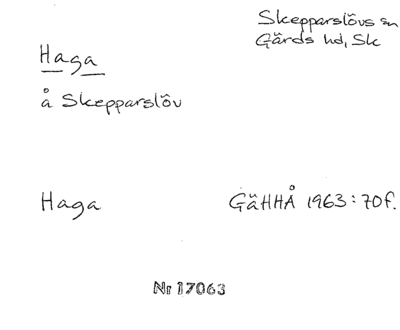 Skepparslövs sn
Gärds hd, Sk
Haga
å Skepparslöv
Haga
GäHHÅ 1963:70f.
Nr 17063